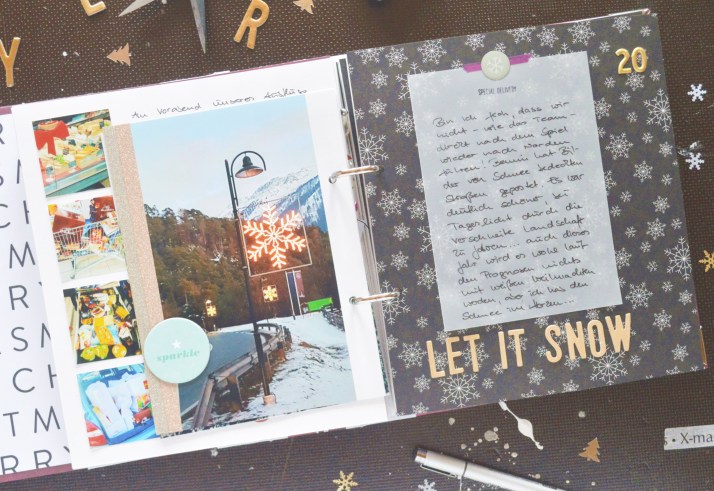 Y E R
An Vorabend unserer
sparkle
20
SPECIAL DELIVERY
Bin ich froh, dass wir
nicht - wie das Team -
direkt nach dem Spiel
wieder nach
hat Bil-
der von Schnee bedeckten
Straßen gepostet. Es war
deutlich schöner, bei
Tageslicht durch die
verschneite Landschaft
zu fahren... auch dieses
Jahr wird es wohl laut
den Prognosen nichts
mit weißen Weihnachten
werden, aber ich hab den
Schnee im Herzen...
LET IT SNOW
X-ma